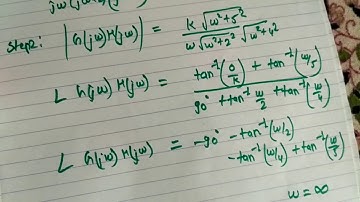 jω G(jω) H(jω)
Step2: |G(jω)H(jω)| = K √ω²+5² / ω √ω²+2² √ω²+4²
∠ G(jω) H(jω) = tan⁻¹(0/K) + tan⁻¹(ω/5) / 90° + tan⁻¹ ω/2 + tan⁻¹(ω/4)
∠ G(jω) H(jω) = -90° - tan⁻¹(ω/2)
- tan⁻¹(ω/4) + tan⁻¹(ω/5)
ω = ∞